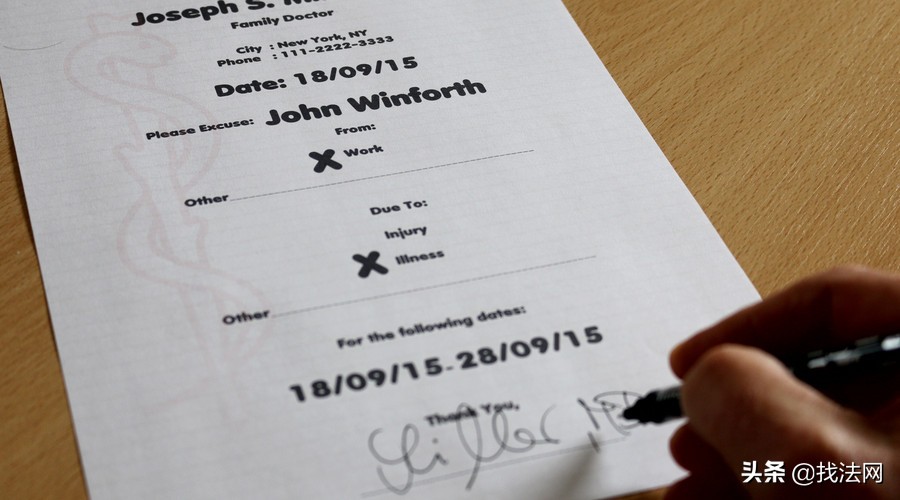 Joseph S.
Family Doctor
City : New York, NY
Phone : 111-2222-3333
Date: 18/09/15
Please Excuse: John Winforth
From:
X Work
Other
Due To:
Injury
X Illness
Other
For the following dates:
18/09/15-28/09/15
Thank You,
Miller MD
头条 @找法网